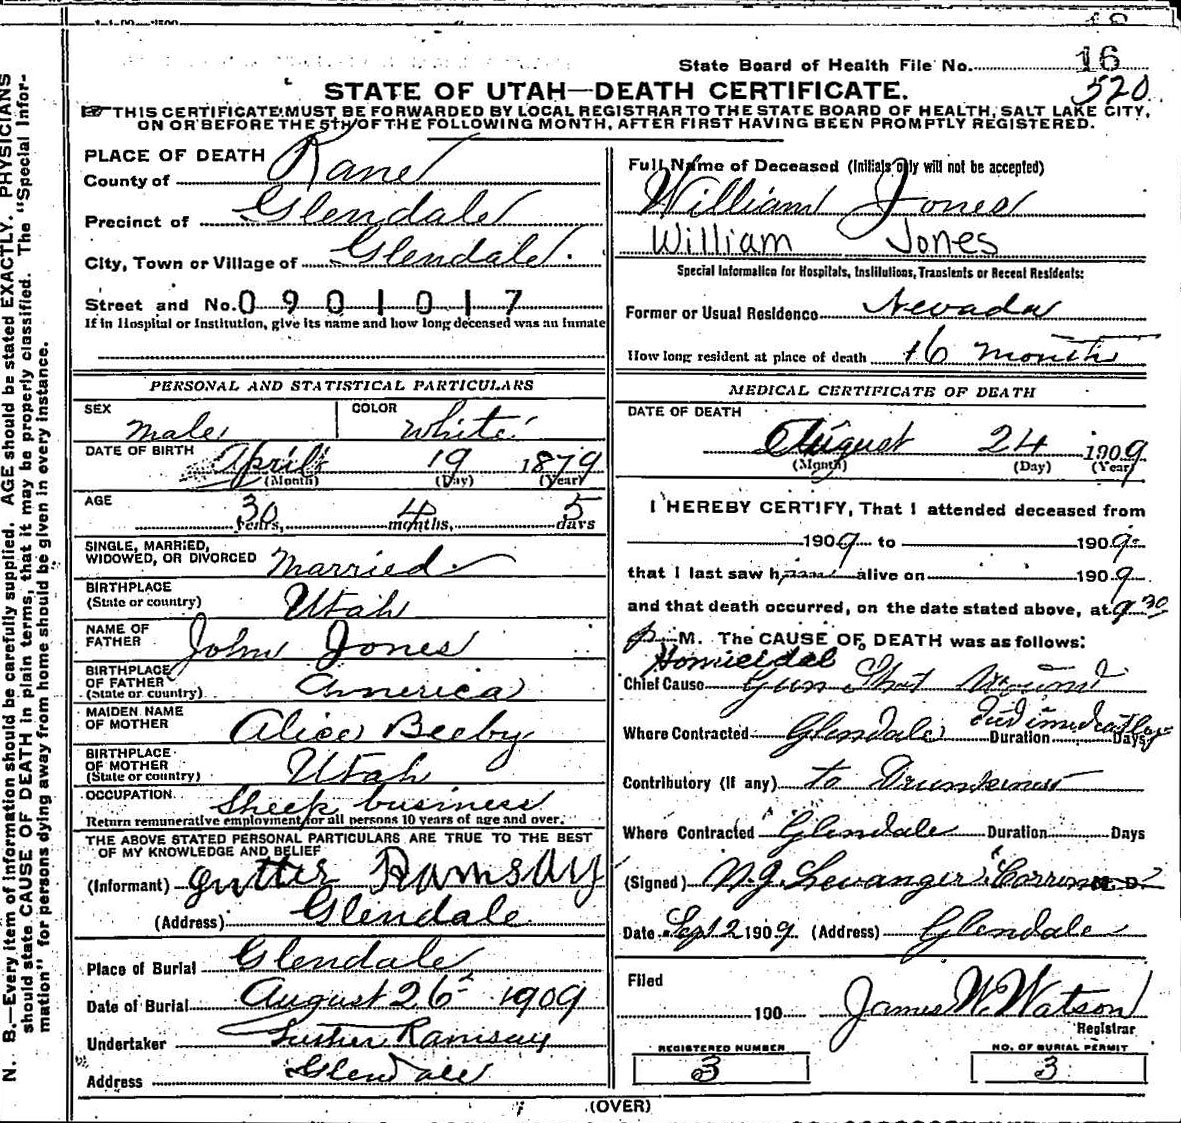 State Board of Health File No. 16
520
STATE OF UTAH—DEATH CERTIFICATE.
THIS CERTIFICATE MUST BE FORWARDED BY LOCAL REGISTRAR TO THE STATE BOARD OF HEALTH, SALT LAKE CITY,
ON OR BEFORE THE 5th OF THE FOLLOWING MONTH, AFTER FIRST HAVING BEEN PROMPTLY REGISTERED.
PLACE OF DEATH
County of Kane
Precinct of Glendale
City, Town or Village of Glendale.
Street and No. 0901017
If in Hospital or Institution, give its name and how long deceased was an inmate
PERSONAL AND STATISTICAL PARTICULARS
SEX male COLOR White
DATE OF BIRTH April 19 1879
(Month) (Day) (Year)
AGE 30 years, 4 months, 5 days
SINGLE, MARRIED,
WIDOWED, OR DIVORCED Married
BIRTHPLACE
(State or country) Utah
NAME OF
FATHER John Jones
BIRTHPLACE
OF FATHER
(State or country) America
MAIDEN NAME
OF MOTHER Alice Beeby
BIRTHPLACE
OF MOTHER
(State or country) Utah
OCCUPATION Sheep business
Return remunerative employment for all persons 10 years of age and over.
THE ABOVE STATED PERSONAL PARTICULARS ARE TRUE TO THE BEST
OF MY KNOWLEDGE AND BELIEF
(Informant) Ramsay
(Address) Glendale
Place of Burial Glendale
Date of Burial August 26 1909
Undertaker Luther Ramsay
Address Glendale
Full Name of Deceased (Initials only will not be accepted)
William Jones
William Jones
Special Information for Hospitals, Institutions, Transients or Recent Residents:
Former or Usual Residence Nevada
How long resident at place of death 16 month
MEDICAL CERTIFICATE OF DEATH
DATE OF DEATH
August 24 1909
(Month) (Day) (Year)
I HEREBY CERTIFY, That I attended deceased from
1909 to 1909
that I last saw him alive on 1909
and that death occurred, on the date stated above, at 9 30
p M. The CAUSE OF DEATH was as follows:
Homicidal
Chief Cause Gun Shot Wound
Where Contracted Glendale Duration Days
Contributory (if any) to
Where Contracted Glendale Duration Days
(Signed) N.J. Levanger M. D.
Date Sept 2 1909 (Address) Glendale
Filed
190 James W. Watson
Registrar
REGISTERED NUMBER
3
NO. OF BURIAL PERMIT
3
(OVER)
N. B.—Every item of information should be carefully supplied. AGE should be stated EXACTLY. PHYSICIANS
should state CAUSE OF DEATH in plain terms, that it may be properly classified. The "Special Infor-
mation" for persons dying away from home should be given in every instance.